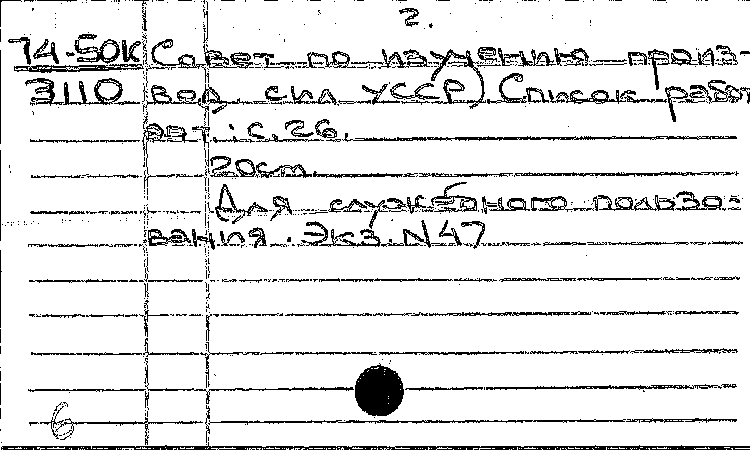 2.
74-50К Совет по изучению произ-
3110 вод. сил УССР). Список работ
авт.: с. 26.
20 cm.
Для служебного пользо-
вания. Экз. N 47
6